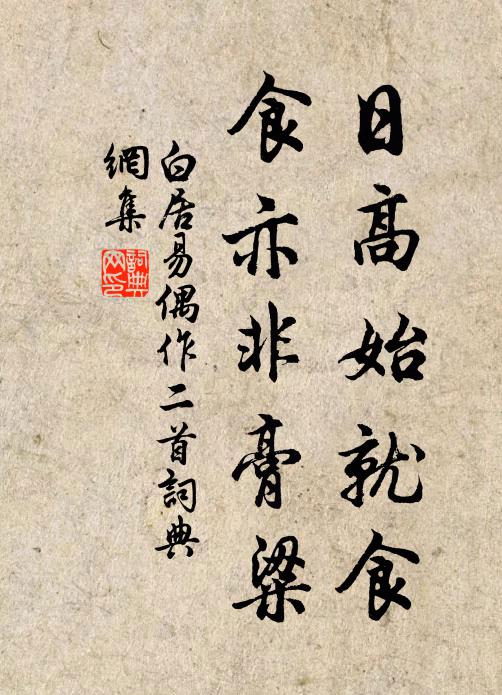 日高始就食
食亦非膏粱
白居易偶作二首詞典
網集
詞典
网印